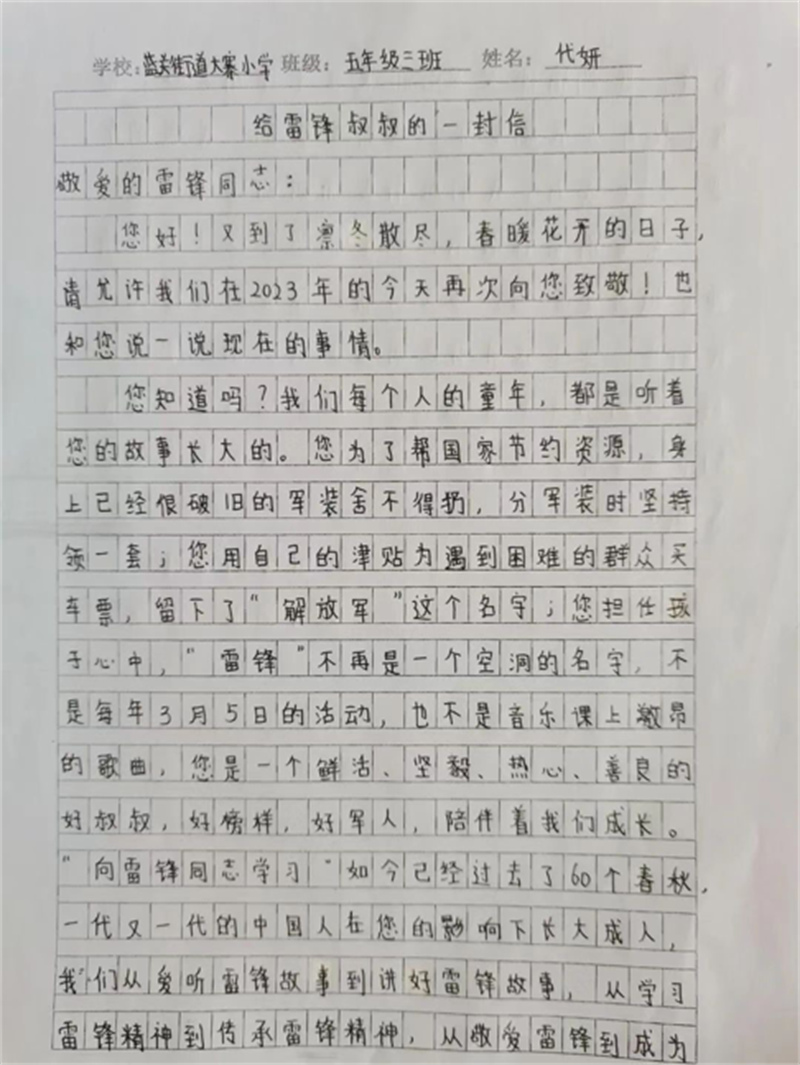 学校：蓝关街道大寨小学 班级：五年级三班 姓名：代妍
给雷锋叔叔的一封信
敬爱的雷锋同志：
您好！又到了凛冬散尽，春暖花开的日子，
请允许我们在2023年的今天再次向您致敬！也
和您说一说现在的事情。
您知道吗？我们每个人的童年，都是听着
您的故事长大的。您为了帮国家节约资源，身
上已经很破旧的军装舍不得扔，分军装时坚持
领一套；您用自己的津贴为遇到困难的群众买
车票，留下了“解放军”这个名字；您担任孩
子心中，“雷锋”不再是一个空洞的名字，不
是每年3月5日的活动，也不是音乐课上激昂
的歌曲，您是一个鲜活、坚毅、热心、善良的
好叔叔，好榜样，好军人，陪伴着我们成长。
“向雷锋同志学习”如今已经过去了60个春秋，
一代又一代的中国人在您的影响下长大成人，
我们从爱听雷锋故事到讲好雷锋故事，从学习
雷锋精神到传承雷锋精神，从敬爱雷锋到成为